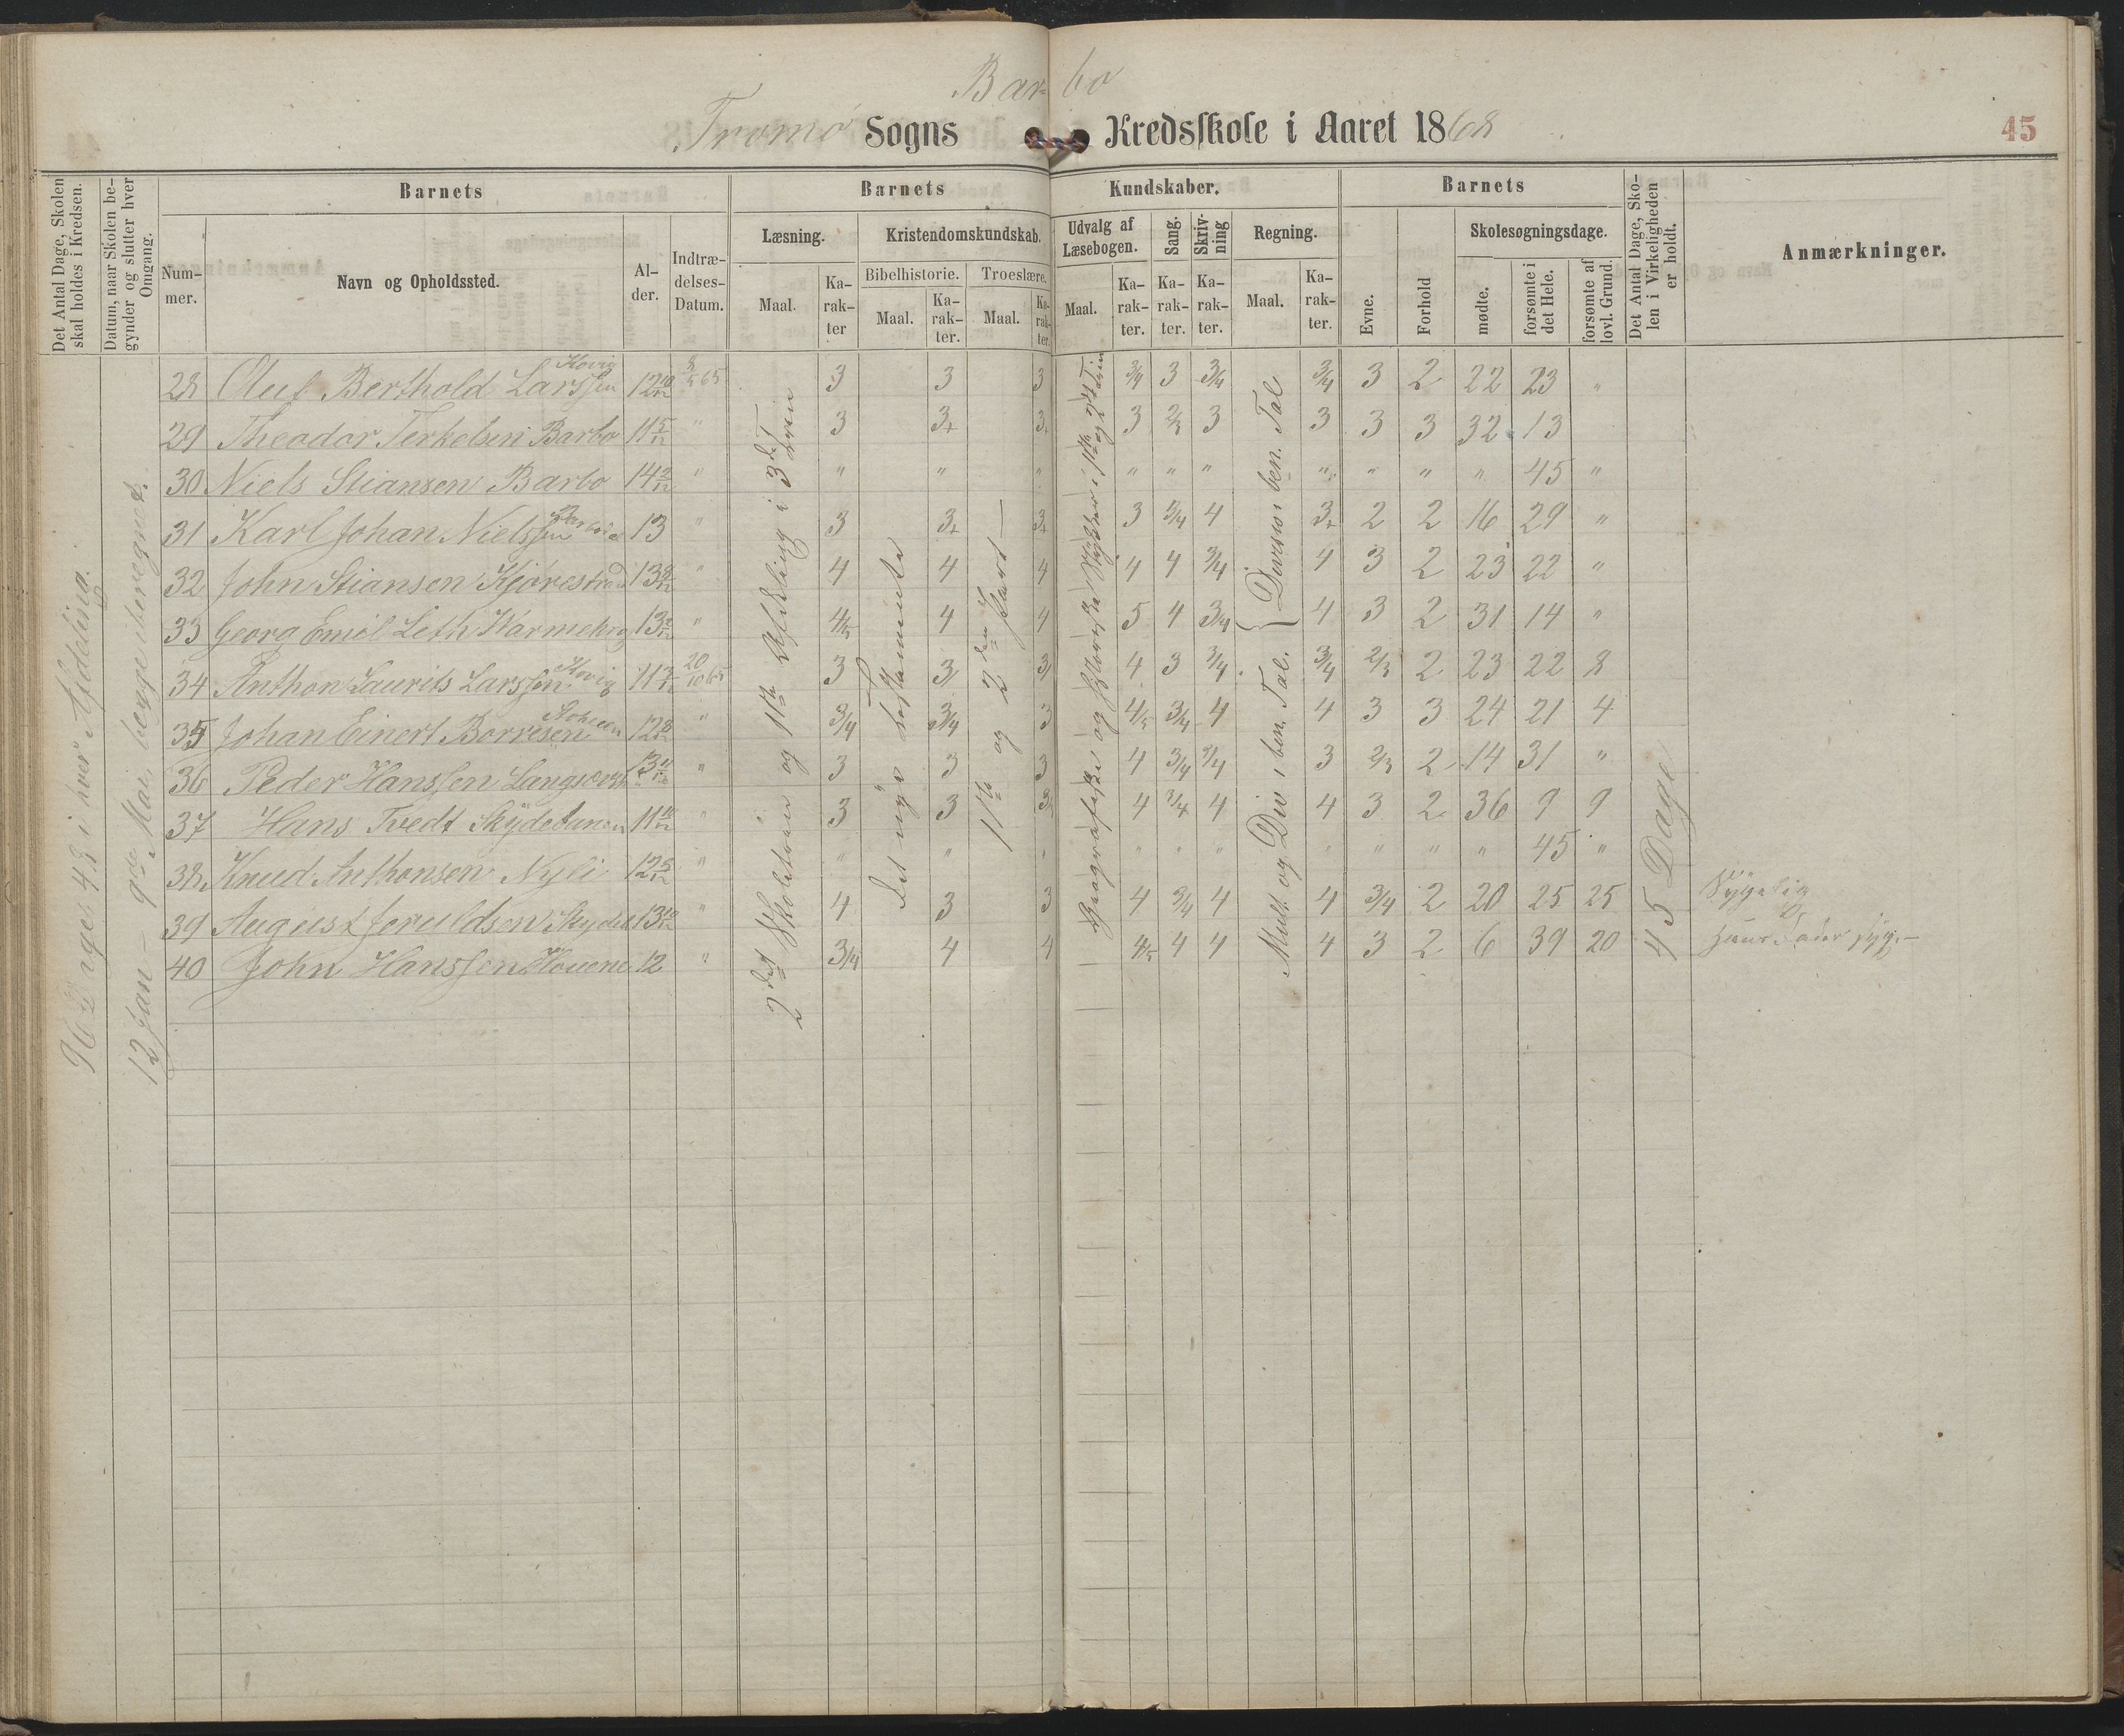 Barbo
Tromø Sogns Kredsskole i Aaret 1868
45
Det Antal Dage, Skolen skal holdes i Kredsen.
Datum, naar Skolen begynder og slutter hver Omgang.
Barnets
Barnets Kundskaber.
Barnets
Det Antal Dage, Skolen i Virkeligheden er holdt.
Anmærkninger.
Nummer.
Navn og Opholdssted.
Alder.
Indtrædelses-Datum.
Læsning.
Kristendomskundskab.
Udvalg af Læsebogen.
Sang.
Skrivning
Regning.
Evne.
Forhold
Skolesøgningsdage.
Bibelhistorie.
Troeslære.
mødte.
forsømte i det Hele.
forsømte af lovl. Grund.
Maal.
Karakter
Maal.
Karakter.
Maal.
Karakter.
Maal.
Karakter.
Karakter.
Karakter.
Maal.
Karakter.
96 Dage, 48 i hver Afdeling.
12 Jan – 9de Mai, begge iberegnet.
2det Skoletrin og 1ste Afdeling i 3det Trin
Det nye Testamente
1ste og 2den Part
Geografiske og Historiske Stykker i 1ste og 2det Trin
Mult. og Div i ben. Tal.
Division i ben. Tal
45 Dage
28 Oluf Berthold Larssen Hovig 12 10/12 8/5 65 3 3 3 3/4 3 3/4 3/4 3 2 22 23 "
29 Theodor Terkelsen Barbo 11 5/12 " 3 3+ 3+ 3 2/3 3 3 3 3 32 13
30 Niels Stiansen Barbo 14 2/12 " " " " " " " " " " " 45 "
31 Karl Johan Nielssen Barbo 13 " 3 3+ 3+ 3 3/4 4 3+ 2 2 16 29 "
32 John Stiansen Kjørestrad 13 8/12 " 4 4 4 4 4 3/4 4 3 2 23 22 "
33 Georg Emil Leth 13 " 4/5 4 4 5 4 3/4 4 3 2 31 14 "
34 Anthon Laurits Larssen Hovig 11 20/10 65 3 3 3 4 3 3/4 3/4 2/3 2 23 22 8
35 Johan Einert Borresen 12 8/12 " 3/4 3/4 3 4/5 3/4 4 4 3 3 24 21 4
36 Peder Hanssen 13 " 3 3 3 4 3/4 3/4 3 2/3 2 14 31 "
37 Hans Tvedt 11 10/12 " 3 3 3 4 3/4 4 4 3 2 36 9 9
38 Knud Anthonsen Nyli 12 5/12 " " " " " " " " " " " 45 "
39 August 13 10/12 " 4 3 3 4 3/4 4 4 3/4 2 20 25 25 Sygelig
40 John Hanssen 12 " 3/4 4 4 4/5 4 4 4 3 2 6 39 20 syg.–